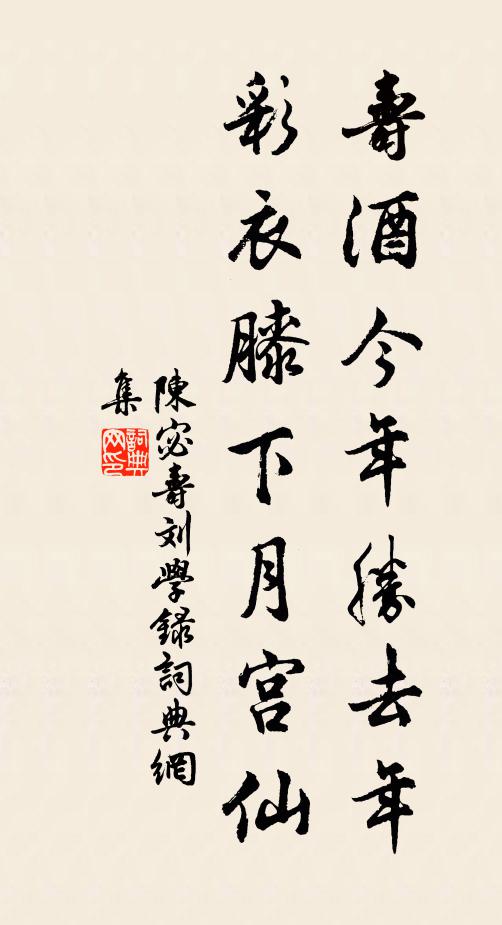 壽酒今年勝去年
彩衣膝下月宮仙
陳宓壽刘學録詞典網
集
詞典
网印